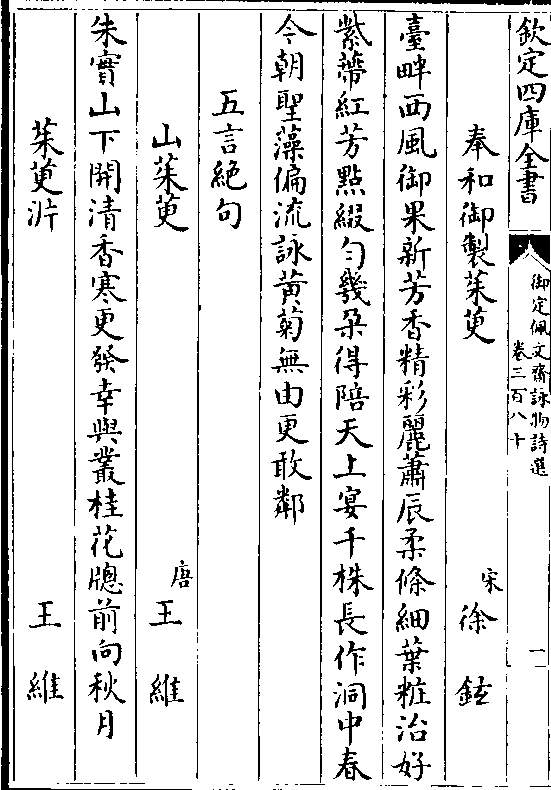 欽定四庫全書
御定佩文齋詠物詩選
卷三百八十
一
奉和御製茱萸
宋徐鉉
臺畔西風御果新芳香精彩麗蕭辰柔條細葉粧治好
紫蔕紅芳點綴勻幾朶得陪天上宴千株長作洞中春
今朝聖藻偏流詠黄菊無由更敢鄰
五言絶句
山茱萸
唐王維
朱實山下開清香寒更發幸與叢桂花牕前向秋月
茱萸沜
王維